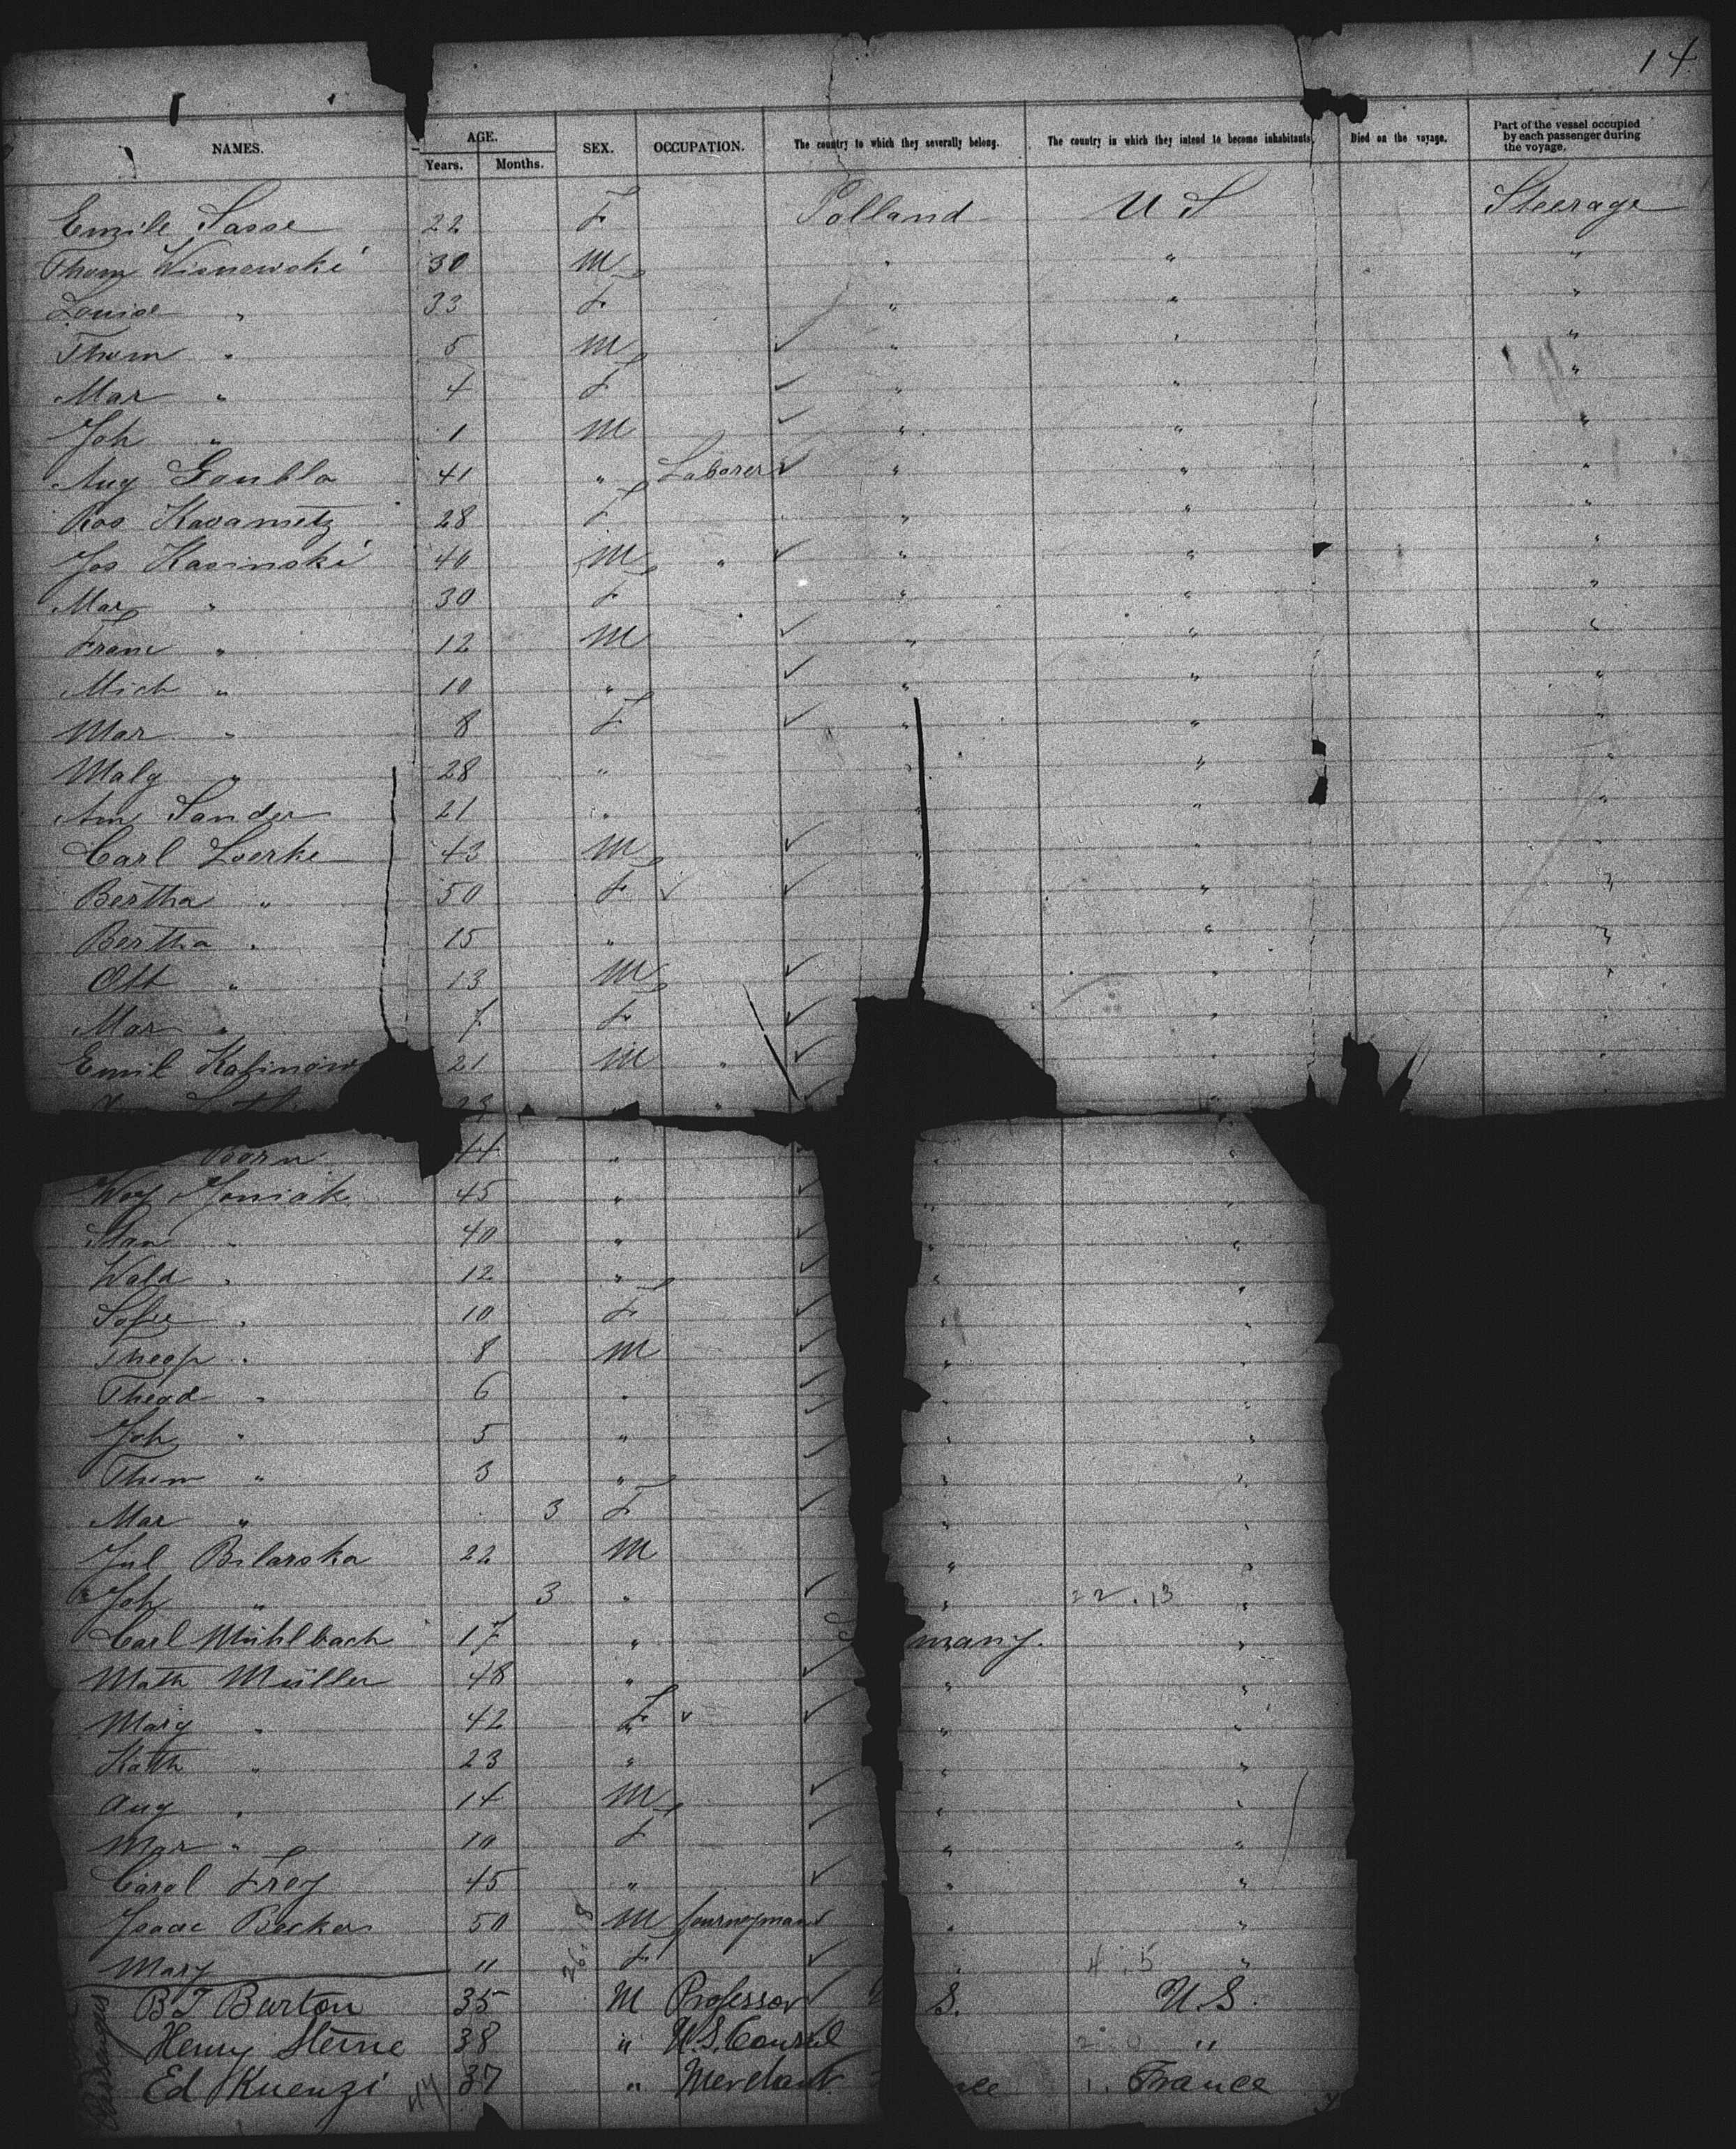 14
NAMES. AGE. Years. Months. SEX. OCCUPATION. The country to which they severally belong. The country in which they intend to become inhabitants. Died on the voyage. Part of the vessel occupied by each passenger during the voyage.
Emile Sasse 22 F Polland U S Steerage
Thom Wisnewski 30 M " " "
Louise " 33 F " " "
Thom " 5 M ✓ " " "
Mar " 4 F ✓ " " "
Joh " 1 M ✓ " " "
Aug Goubla 41 " Laborer ✓ " " "
Ros 28 F " " "
Jos Kasinski 40 M " ✓ " " "
Mar " 30 F " " "
Franc " 12 M ✓ " " "
Mich " 10 " ✓ " " "
Mar " 8 F ✓ " " "
Malg " 28 " " " "
Am Sander 21 " " " "
Carl Loerke 43 M ✓ " " "
Bertha " 50 F ✓ ✓ " "
Bertha " 15 " " "
Ott " 13 M ✓ " "
Mar " 7 F ✓ " "
Emil Kalinow 21 M " ✓ " "
23 " " ✓ "
44 " ✓ " "
Woy Joniak 45 " ✓ " "
Stan " 40 " ✓ " "
Wald " 12 " ✓ " "
Sofie " 10 F ✓ " "
Theop " 8 M ✓ " "
Thead " 6 " ✓ " "
Joh " 5 " ✓ " "
Thom " 3 " ✓ " "
Mar " 3 F ✓ " "
Jul Bilarska 22 M " "
Joh " 3 " ✓ " 22.13 "
Carl Mühlbach 17 " G many. "
Math Müller 48 " ✓ " "
Marg " 42 F ✓ ✓ " "
Kath " 23 " " "
Aug " 14 M ✓ " "
Mar " 10 F ✓ " "
Carol Frey 45 " ✓ " "
Isaac Becker 50 M Journeyman ✓ " "
Mary 11 F ✓ " 4.5 "
B J Burton 35 M Professor ✓ U S. U.S.
Henry Sterne 38 " U.S. Consul "
Ed Kuenzi 44 37 " Merchant nce 1. France